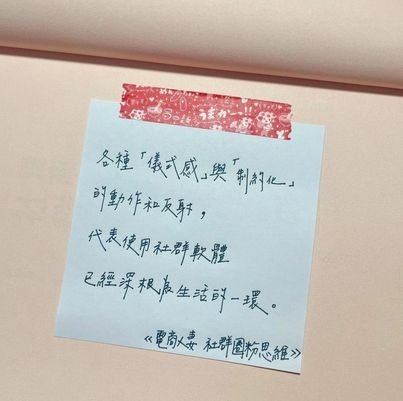 うまかー!!
各種「儀式感」與「制約化」
的動作和反射，
代表使用社群軟體
已經深根為生活的一環。
《電商人妻 社群圈粉思維》